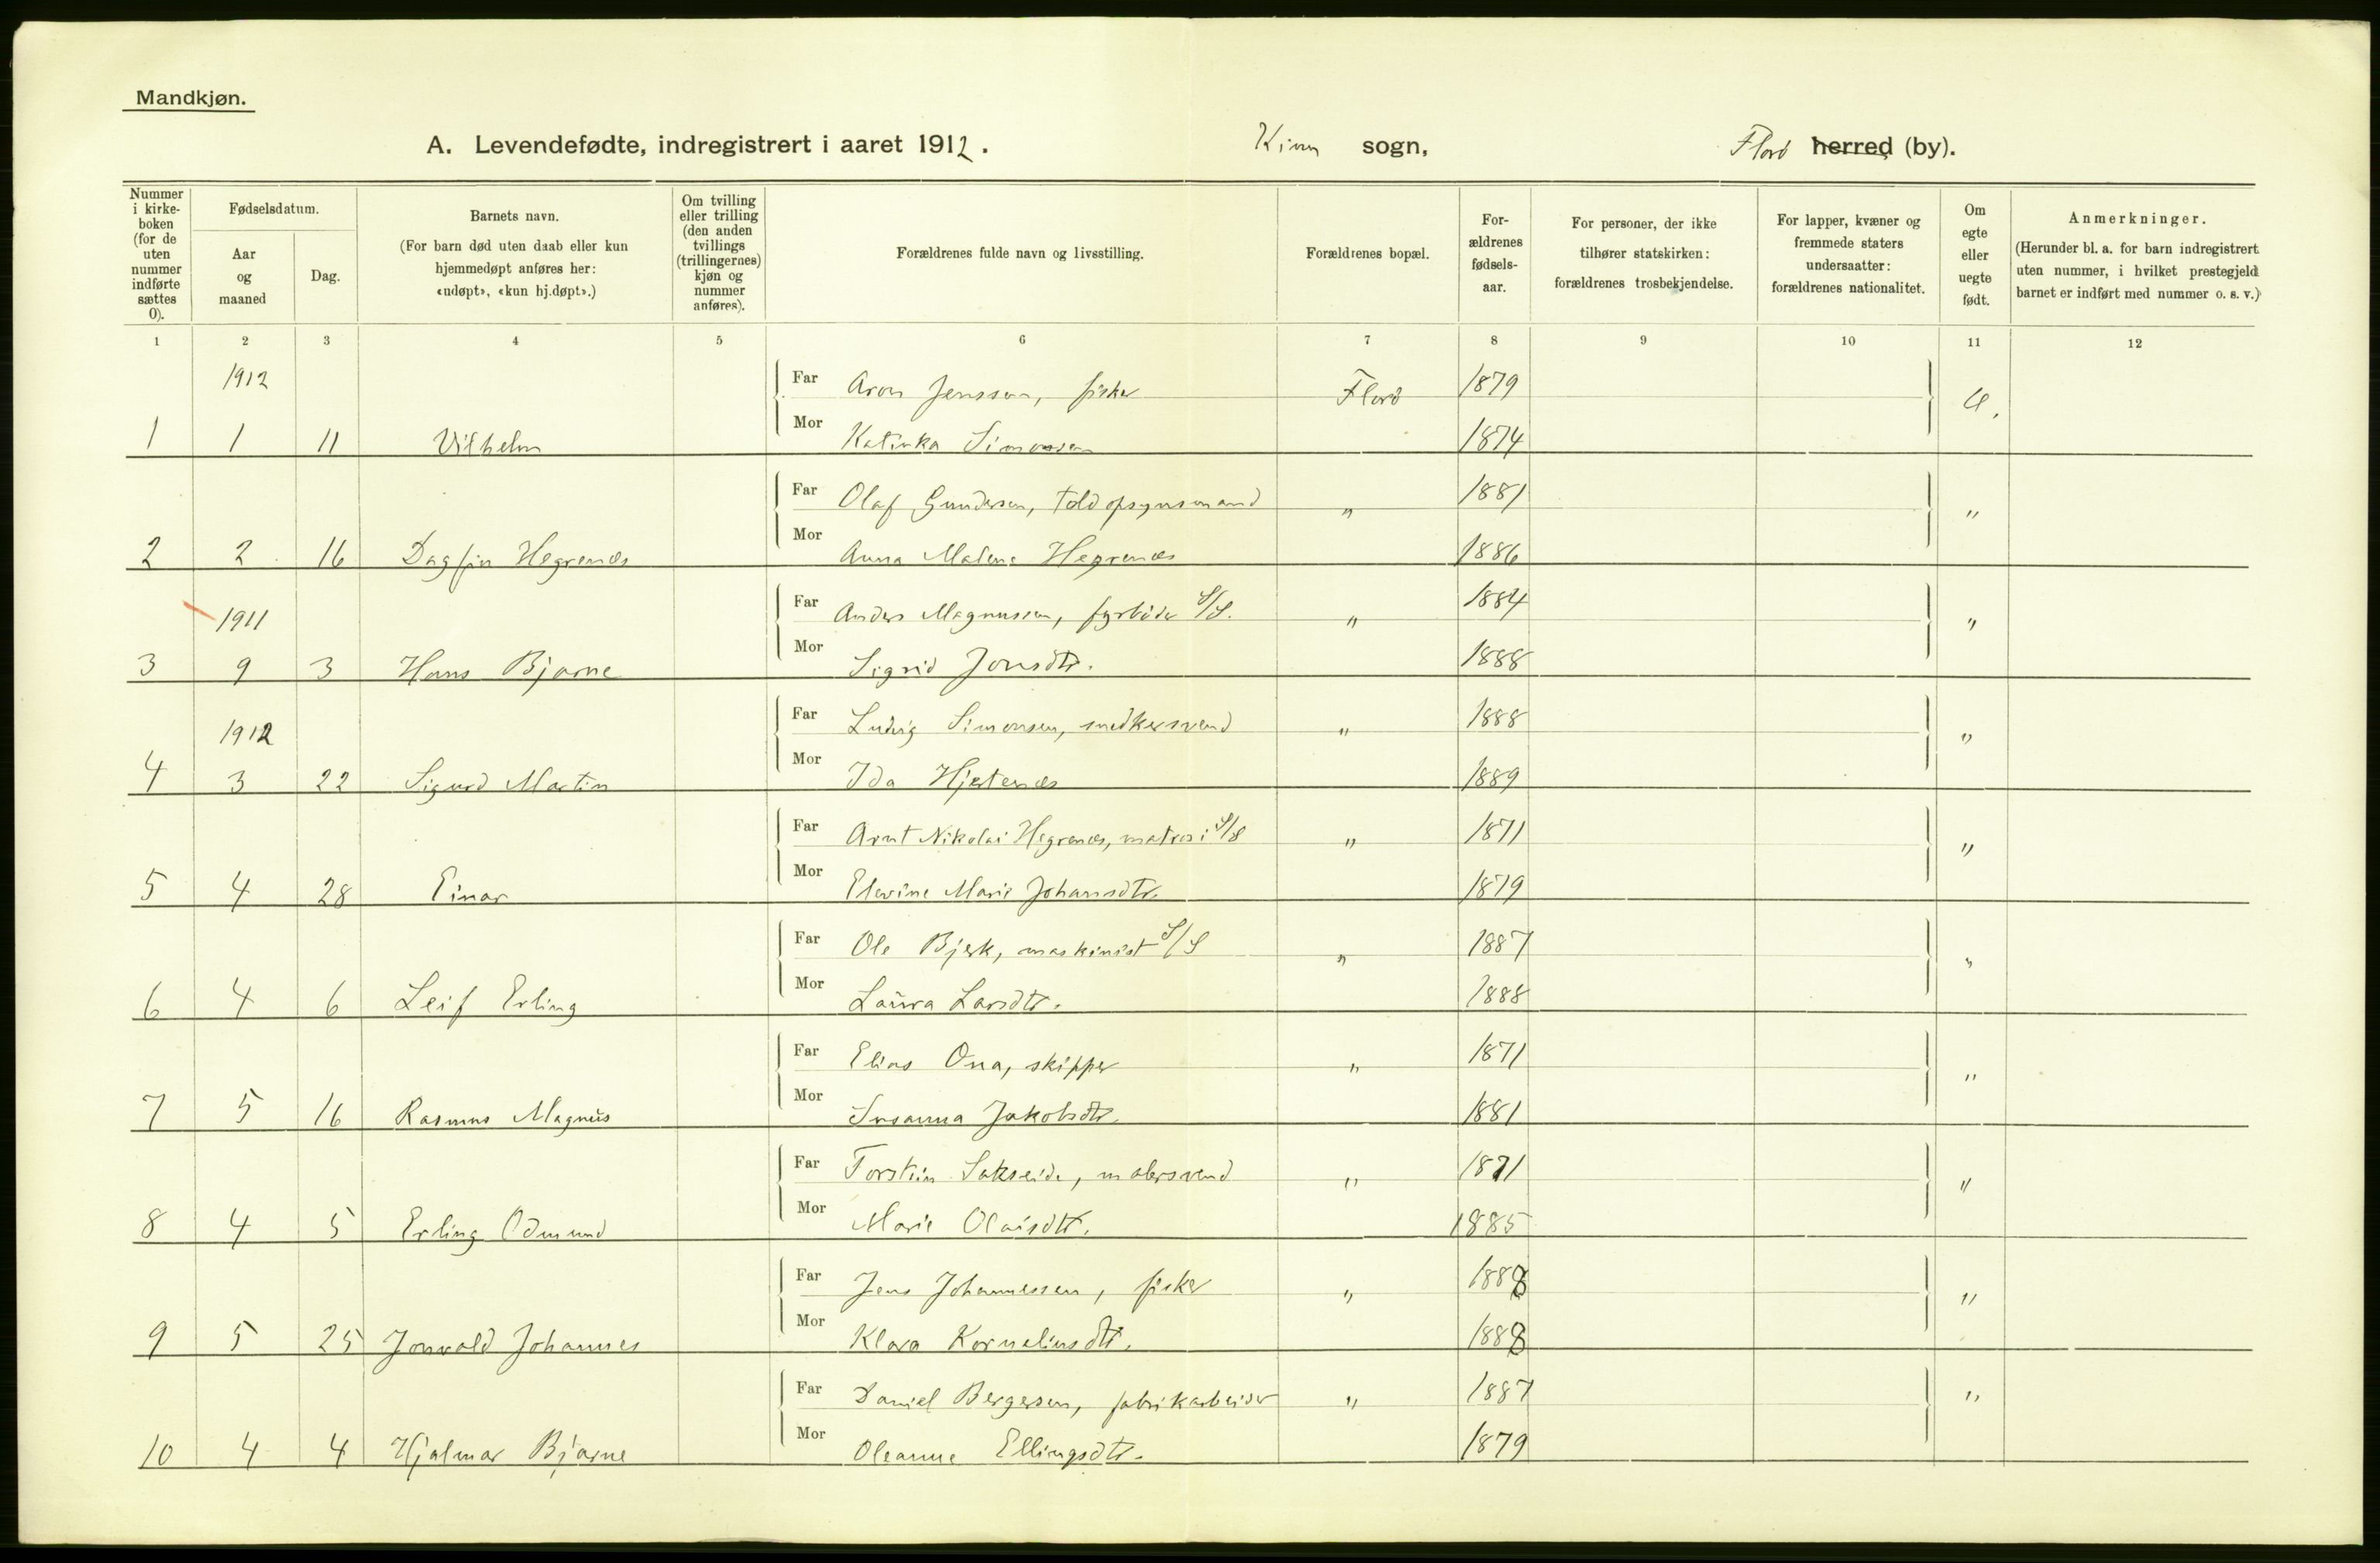 Mandkjøn.
A. Levendefødte, indregistrert i aaret 1912.
Kinn sogn,
Florø herred (by).
Nummer i kirke-boken (for de uten nummer indførte sættes 0).
Fødselsdatum.
Aar og maaned
Dag.
Barnets navn.
(For barn død uten daab eller kun hjemmedøpt anføres her: «udøpt», «kun hj.døpt».)
Om tvilling eller trilling (den anden tvillings (trillingernes) kjøn og nummer anføres).
Forældrenes fulde navn og livsstilling.
Forældrenes bopæl.
For-ældrenes fødsels-aar.
For personer, der ikke tilhører statskirken: forældrenes trosbekjendelse.
For lapper, kvæner og fremmede staters undersaatter: forældrenes nationalitet.
Om egte eller uegte født.
Anmerkninger.
(Herunder bl. a. for barn indregistrert uten nummer, i hvilket prestegjeld barnet er indført med nummer o. s. v.)
1 2 3 4 5 6 7 8 9 10 11 12
1912
Far Aron Jenssen, fisker Florø 1879
1 1 11 Vilhelm Mor Katinka Simonsen 1874
Far Olaf Gundersen, toldopsynsmand " 1881 "
2 2 16 Dagfin Hegrenæs Mor Anna Malene Hegrenæs 1886
1911
Far Anders Magnussen, fyrbøder S/S. " 1884 "
3 9 3 Hans Bjarne Mor Sigrid Jonsdtr. 1888
1912
Far Ludvig Simonsen, snedkersvend " 1888 "
4 3 22 Sigurd Martin Mor Ida Hjertenæs 1889
Far Arnt Nikolai Hegrenæs, matros i S/S " 1871 "
5 4 28 Einar Mor Elevine Marie Johansdtr. 1879
Far Ole Bjerk, maskinist S/S " 1887 "
6 4 6 Leif Erling Mor Laura Larsdtr. 1888
Far Elias Ona, skipper " 1871 "
7 5 16 Rasmus Magnus Mor Susanna Jakobsdtr. 1881
Far Torstein Sakseide, malersvend " 1871 "
8 4 5 Erling Odmund Mor Marie Olaisdtr. 1885
Far Jens Johannessen, fisker " 1888 "
9 5 25 Jonvald Johannes Mor Klara Korneliusdtr. 1888
Far Daniel Bergersen, fabrikarbeider " 1887 "
10 4 4 Hjalmar Bjarne Mor Oleanne Ellingsdtr. 1879